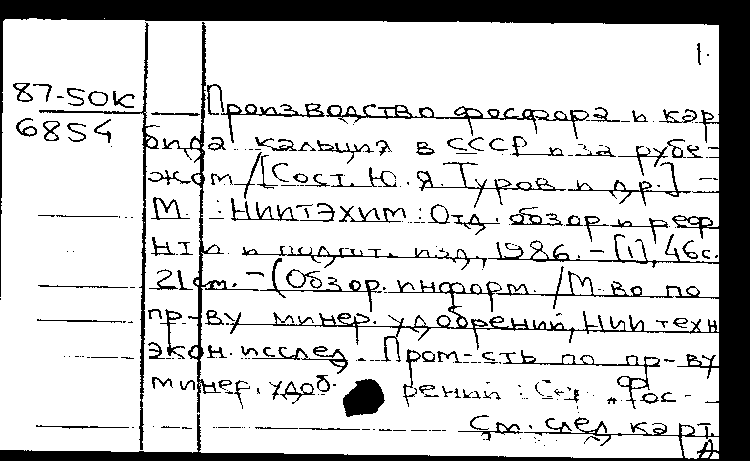 1.
87-50к
6854
Производство фосфора и кар
бида кальция в СССР и за рубе-
жом / [Сост. Ю. Я. Туров и др.] -
М. : НИИТЭХИМ : Отд. обзор и реф
НТИ и подгот. изд., 1986. - [1], 46 с.
21 см. - (Обзор. информ. / М-во по
пр-ву минер. удобрений, НИИ техн
экон. исслед. Пром-сть по пр-ву
минер. удобрений : Сер. „Фос-
См. след. карт.